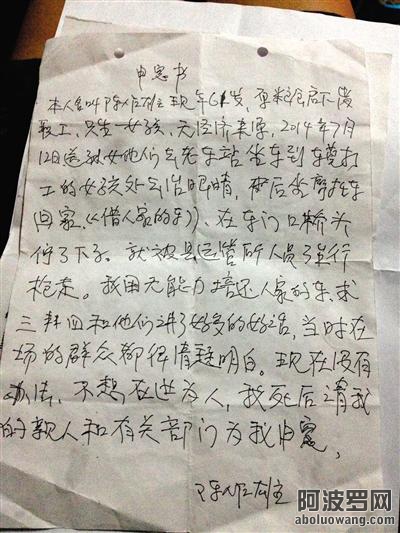 申冤书
本人名叫陈 雄主现年61岁,原粮食局下岗
职工,只生一女孩,无经济来源,2014年7月
12日送孙女他们去老车站坐车到 打
工的女孩处去治眼睛,而后坐摩托车
回家,《借人家的车》,在车门口桥头
停了下子。就被县运管所人员强行
抢走。我因无能力培还人家的车,求
三拜四和他们讲了好多的好话,当时在
场的群众都很清疑明白。现在没有
办法,不想在世为人,我死后请我
的亲人和有关部门为我申冤,
陈 雄主
阿波罗网
aboluowang.com